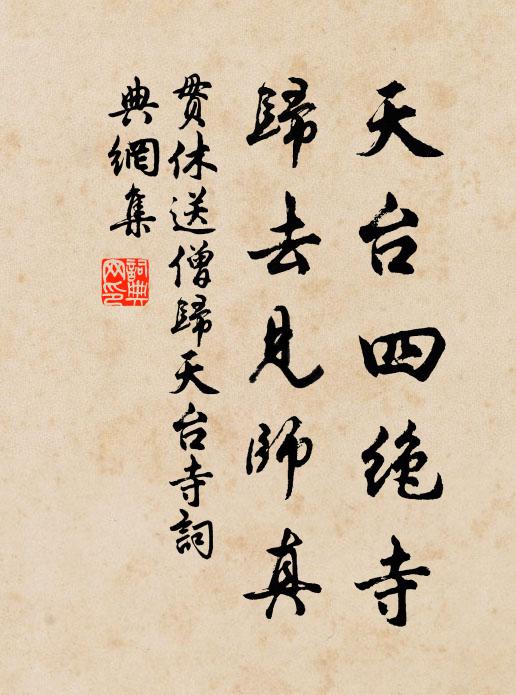 天台四絶寺
歸去見師真
貫休送僧歸天台寺詞
典網集
詞典
网印